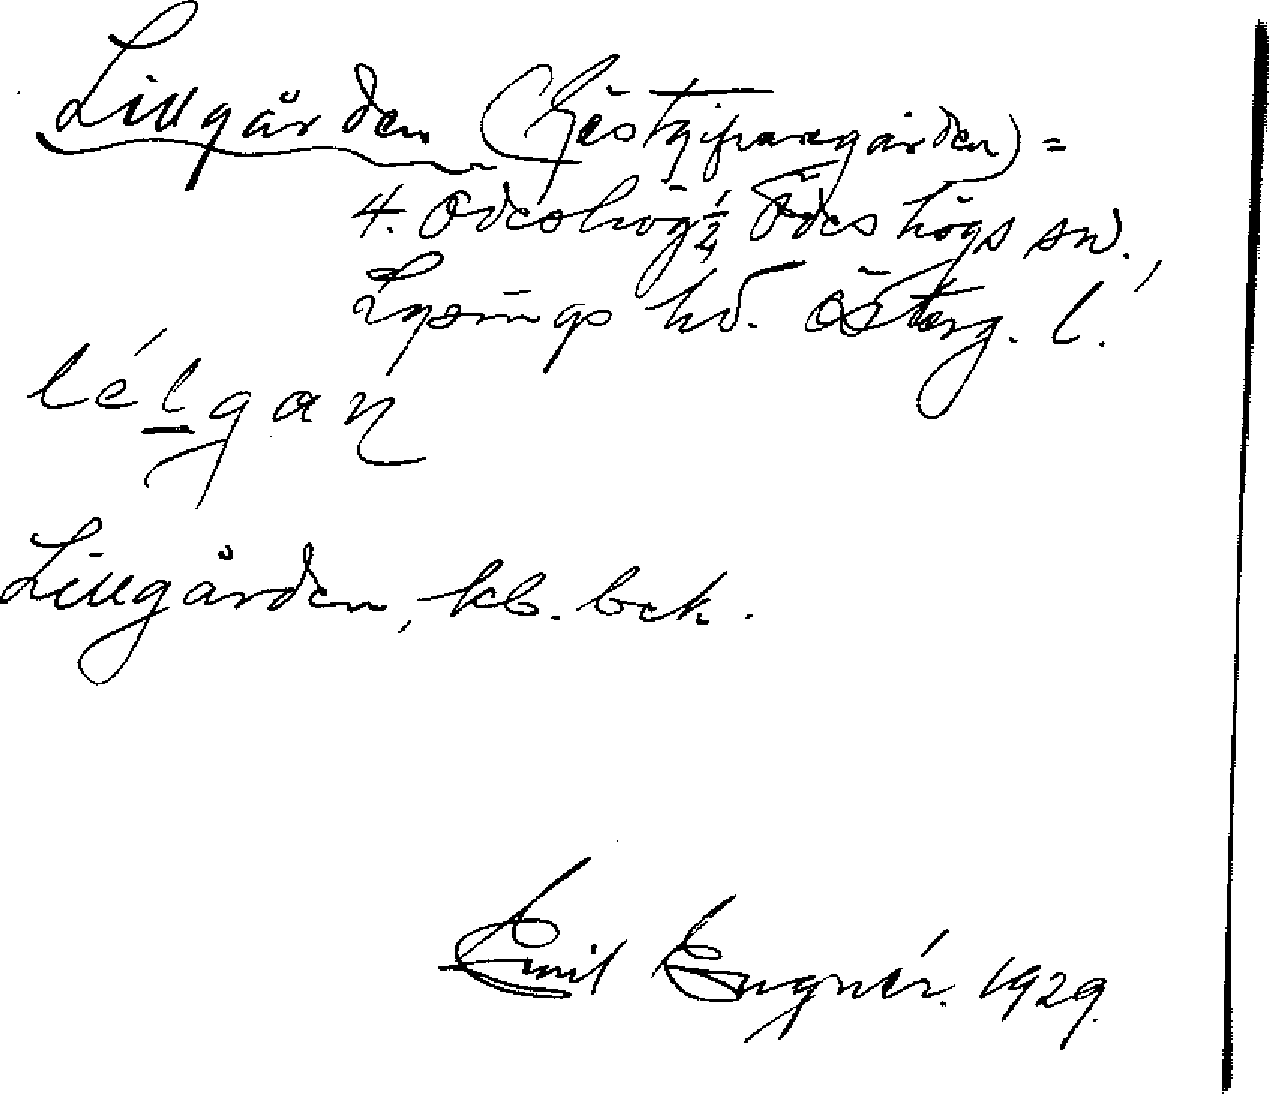 Lillgården (Gästgifvaregården) =
4. Ödeshög 1/4 Ödeshögs sn.,
Lysings hd. Österg. l.
lé l gan
Lillgården, kb. bek.
Emil Engnér. 1929.